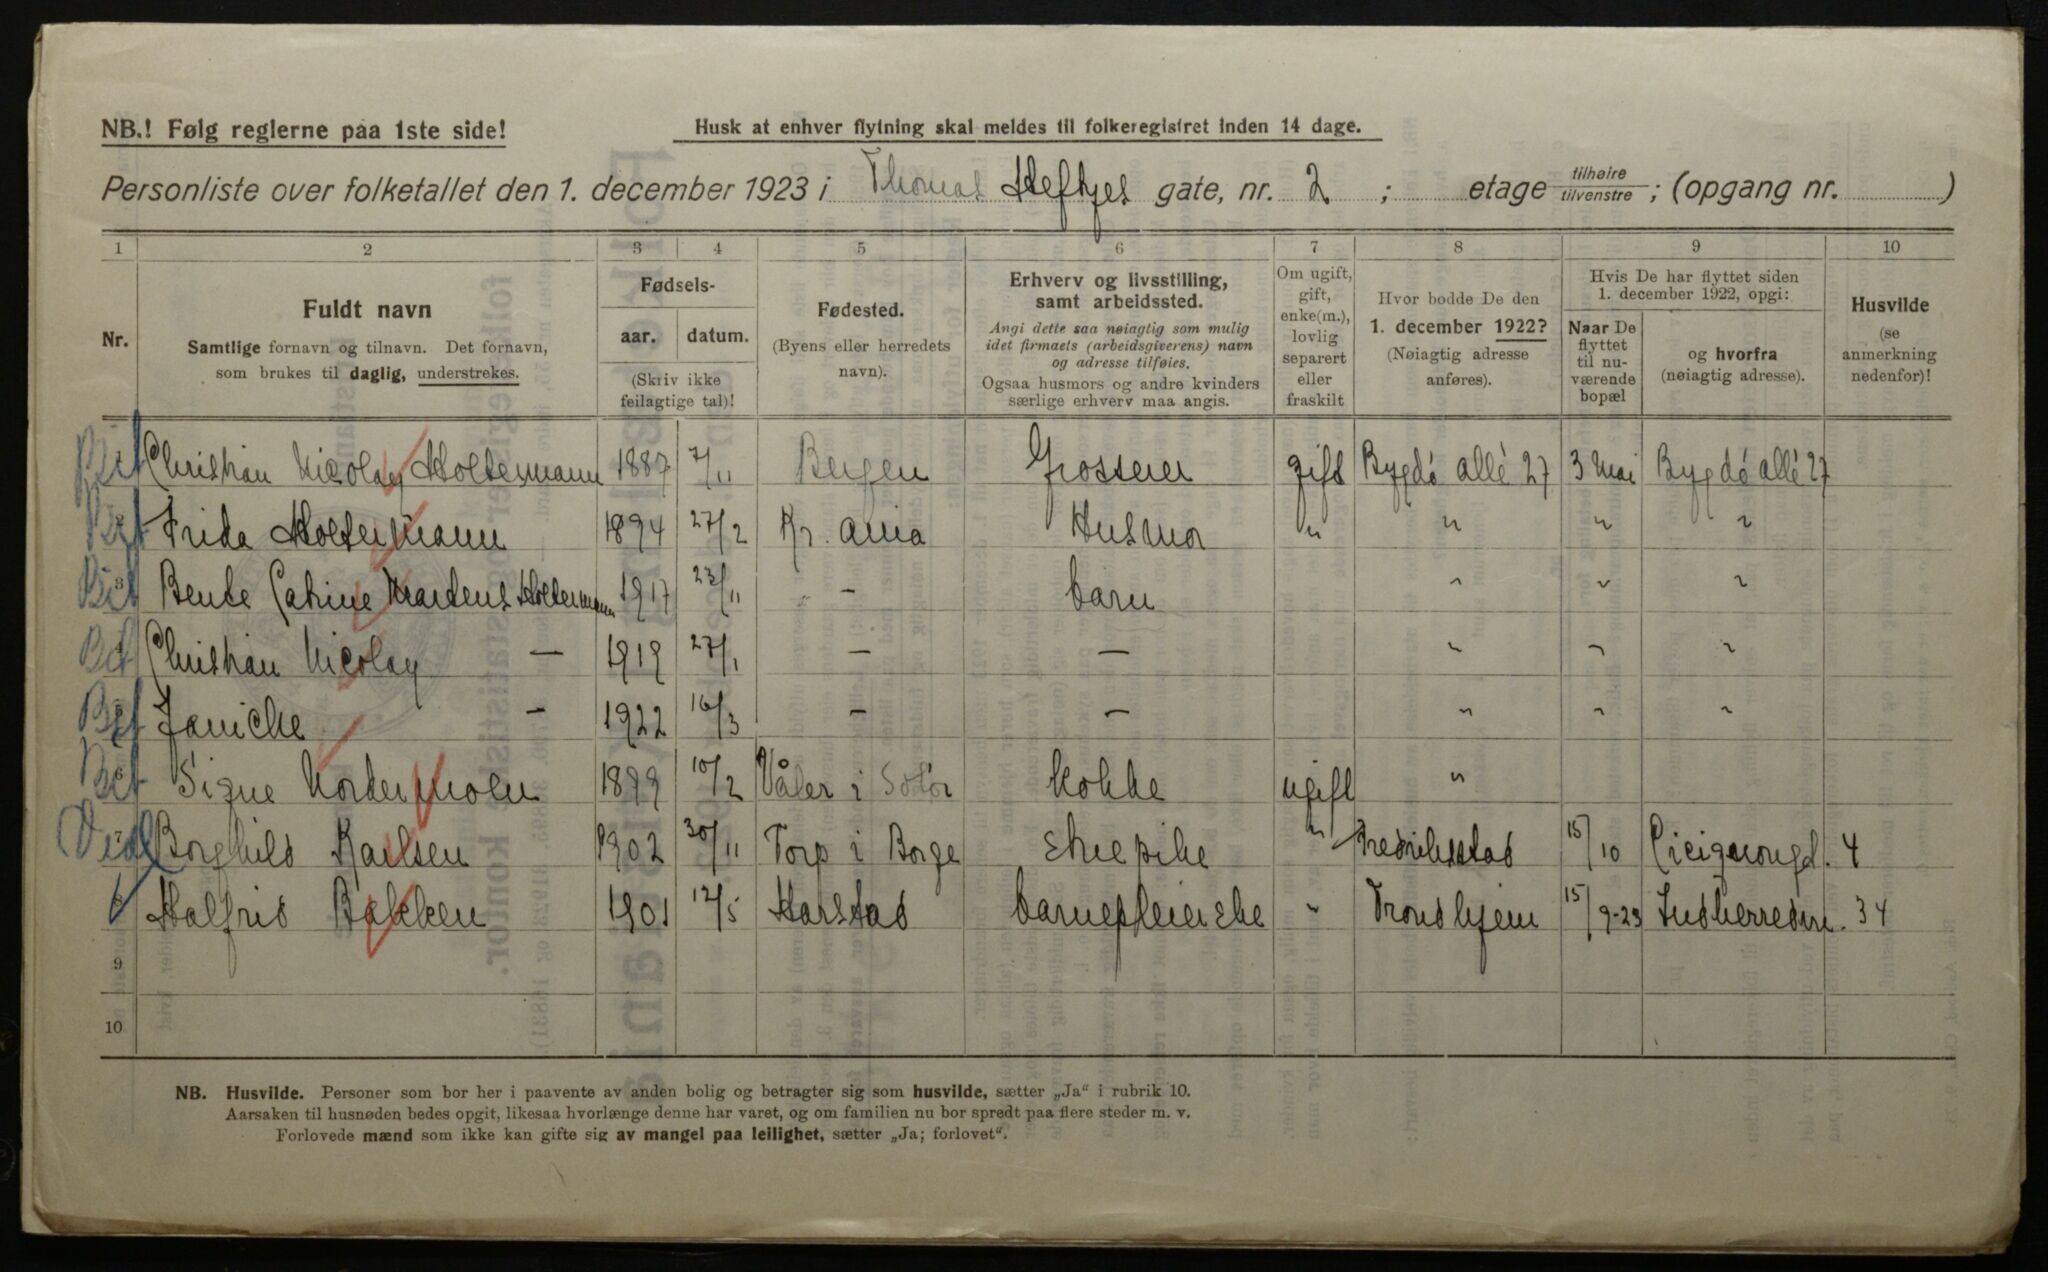 NB.! Følg reglerne paa 1ste side!
Husk at enhver flytning skal meldes til folkeregistret inden 14 dage.
Personliste over folketallet den 1. december 1923 i Thomas Heftyes gate, nr. 2 ; etage tilhøire tilvenstre ; (opgang nr. )
1 2 3 4 5 6 7 8 9 10
Nr.
Fuldt navn
Samtlige fornavn og tilnavn. Det fornavn,
som brukes til daglig, understrekes.
Fødsels-
aar. datum.
(Skriv ikke
feilagtige tal)!
Fødested.
(Byens eller herredets
navn).
Erhverv og livsstilling,
samt arbeidssted.
Angi dette saa nøiagtig som mulig
idet firmaets (arbeidsgiverens) navn
og adresse tilføies.
Ogsaa husmors og andre kvinders
særlige erhverv maa angis.
Om ugift,
gift,
enke(m.),
lovlig
separert
eller
fraskilt
Hvor bodde De den
1. december 1922?
(Nøiagtig adresse
anføres).
Hvis De har flyttet siden
1. december 1922, opgi:
Naar De
flyttet
til nu-
værende
bopæl
og hvorfra
(nøiagtig adresse).
Husvilde
(se
anmerkning
nedenfor)!
Christian Nicolay Holtermann 1887 7/11 Bergen Grosserer gift Bygdö allé 27 3 Mai Bygdö allé 27
2 Frida Holtermann 1894 27/2 Kr. ania Husmor " " " "
3 Bente Catrine Martens Holtermann 1917 23/11 " - barn " " "
Christian Nicolay — 1919 27/1 — — " " "
5 Janicke - 1922 16/3 — — " " "
6 Signe Nordermoen 1899 10/2 Våler i Solør Kokke ugift "
7 Borghild Karlsen 1902 30/11 Torp i Borge Enepike " Fredrikstad 15/10 4
8 Halfrid Bakken 1901 12/5 Harstad barnepleierske " Trondhjem 15/9-23 Indherredsv. 34
9
10
NB. Husvilde. Personer som bor her i paavente av anden bolig og betragter sig som husvilde, sætter „Ja“ i rubrik 10.
Aarsaken til husnøden bedes opgit, likesaa hvorlænge denne har varet, og om familien nu bor spredt paa flere steder m. v.
Forlovede mænd som ikke kan gifte sig av mangel paa leilighet, sætter „Ja; forlovet“.